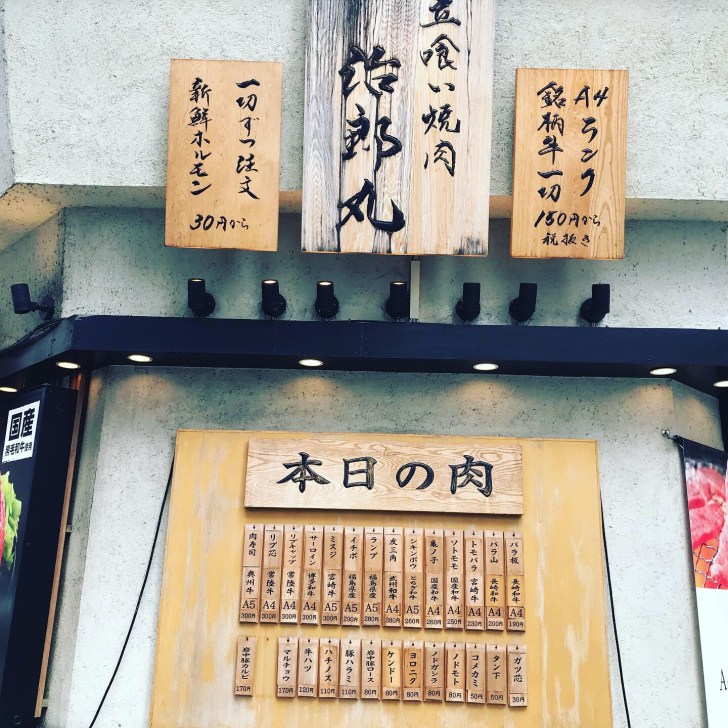 立喰い焼肉
治郎丸
A4ランク
銘柄牛一切
150円から
税抜き
一切ずつ注文
新鮮ホルモン
30円から
国産
黒毛和牛使用
本日の肉
バラ板 長崎和牛 A4 190円
バラ山 長崎和牛 A4 200円
トモバラ 宮崎牛 A4 230円
ソトモモ 国産和牛 A4 250円
亀ノ子 国産和牛 A4 260円
シキンボウ とちぎ和牛 A5 260円
友三角 武州和牛 A4 280円
ランプ 福島県産 A5 280円
イチボ 福島県産 A5 290円
ミスジ 宮崎牛 A5 300円
サーロイン 博多和牛 A4 300円
リブキャップ 常陸牛 A4 300円
リブ芯 常陸牛 A4 300円
肉寿司 奥州牛 A5 300円
ガツ芯 30円
タン下 50円
コメカミ 50円
ノドモト 80円
ノドガシラ 80円
ヨロニク 80円
ケンドー 80円
岩中豚ロース 80円
豚ハラミ 110円
ハチノス 110円
牛ハツ 120円
マルチョウ 170円
岩中豚カルビ 170円
A